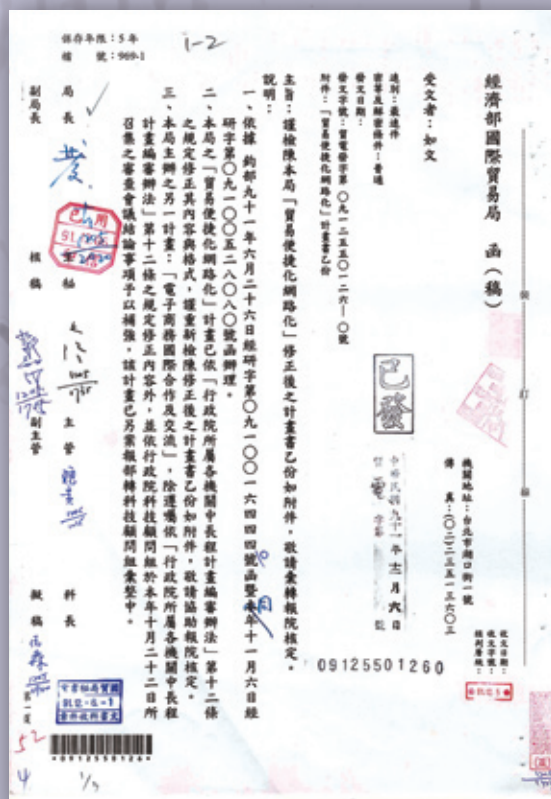 保存年限：5年
檔　　號：969-1
1-2
經濟部國際貿易局　函（稿）
機關地址：台北市湖口街一號
傳　　真：（〇二）二三五一三六〇三
收文日期：
收文字號：
受文者：如文
速別：最速件
密等及解密條件：普通
發文日期：
中華民國九十一年十二月六日
發文字號：貿電發字第〇九一二五五〇一二六一〇號
附件：「貿易便捷化網路化」計畫書乙份
已發
主旨：謹檢陳本局「貿易便捷化網路化」修正後之計畫書乙份如附件，敬請彙轉報院核定。
說明：
一、依據　鈞部九十一年六月二十六日經研字第〇九一〇〇一六四四四〇號函暨同年十一月六日經
研字第〇九一〇〇五二八〇八〇號函辦理。
二、本局之「貿易便捷化網路化」計畫已依「行政院所屬各機關中長程計畫編審辦法」第十二條
之規定修正其內容與格式，謹重新檢陳修正後之計畫書乙份如附件，敬請協助報院核定。
三、本局主辦之另一計畫：「電子商務國際合作及交流」，除遵囑依「行政院所屬各機關中長程
計畫編審辦法」第十二條之規定修正內容外，並依行政院科技顧問組於本年十月二十二日所
召集之審查會議結論事項予以補強，該計畫已另案報部轉科技顧問組彙整中。
09125501260
裝
訂
線
局長
副局長
主秘
核稿
主管
副主管
科長
擬稿
已用
第一頁
52